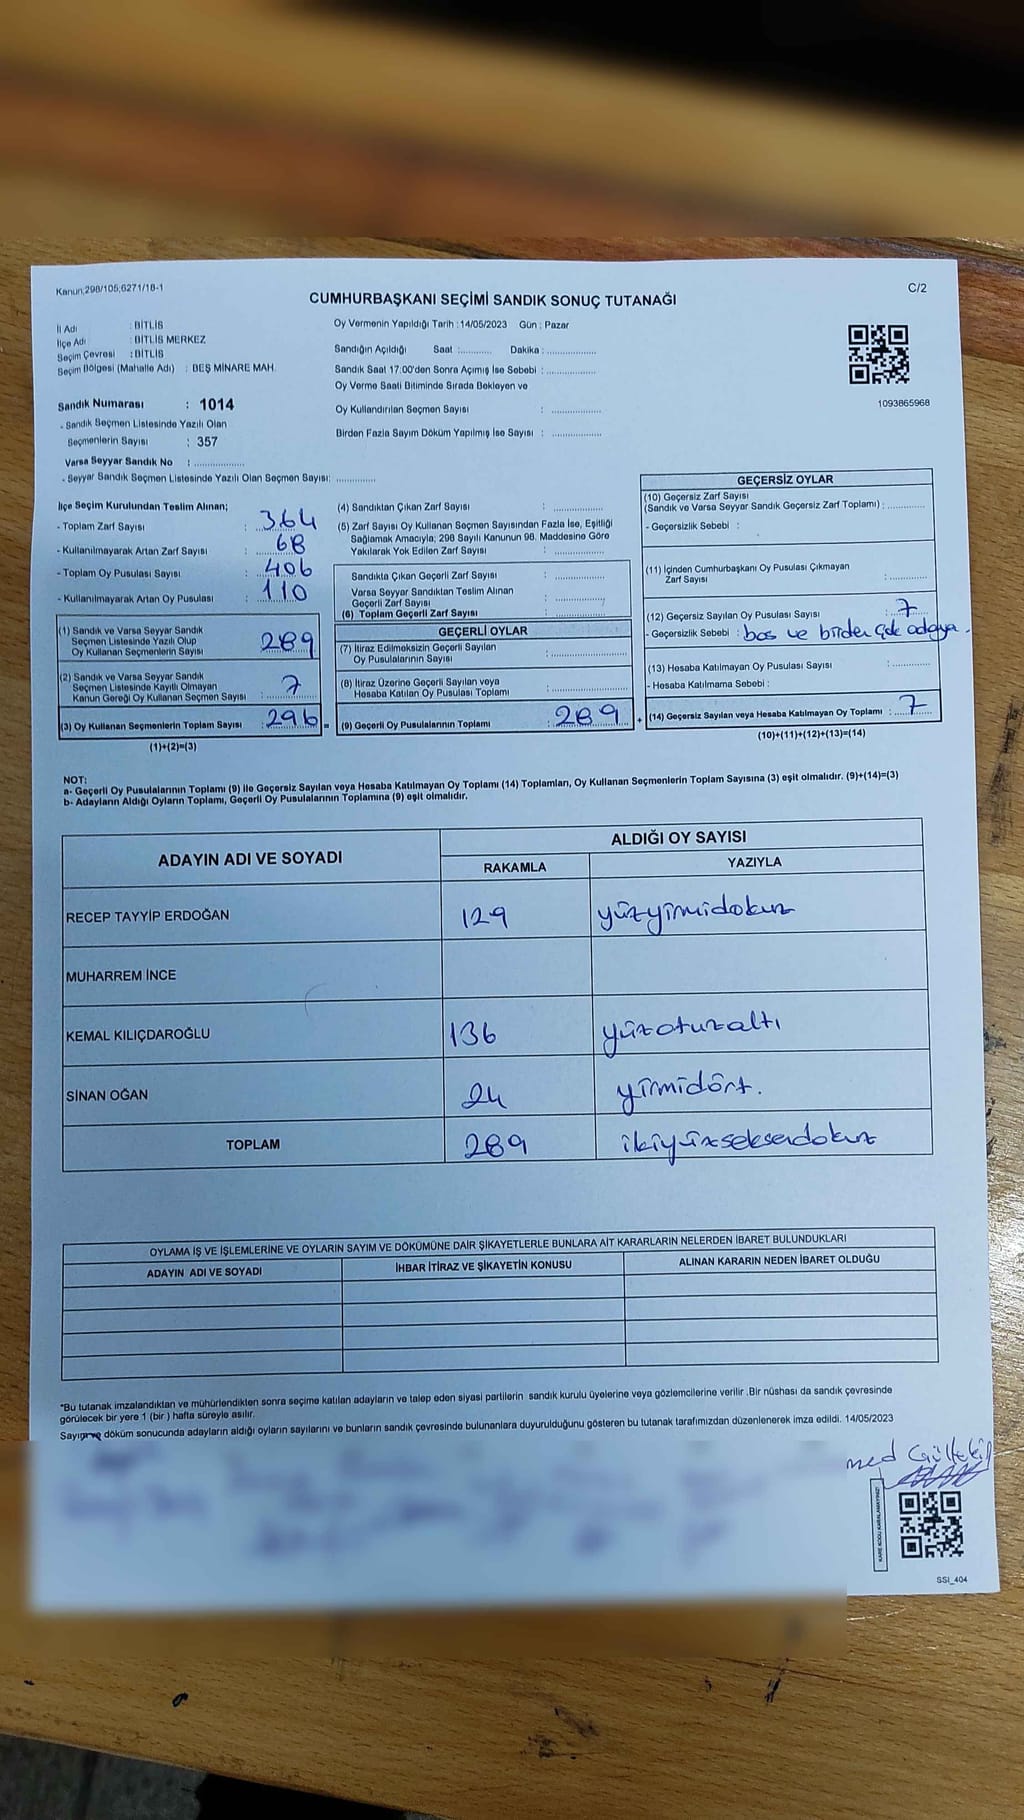 Kanun;298/105;6271/18-1
C/2
CUMHURBAŞKANI SEÇİMİ SANDIK SONUÇ TUTANAĞI
İl Adı : BİTLİS
İlçe Adı : BİTLİS MERKEZ
Seçim Çevresi : BİTLİS
Seçim Bölgesi (Mahalle Adı) : BEŞ MİNARE MAH.
Sandık Numarası : 1014
- Sandık Seçmen Listesinde Yazılı Olan
Seçmenlerin Sayısı : 357
Varsa Seyyar Sandık No : ................
- Seyyar Sandık Seçmen Listesinde Yazılı Olan Seçmen Sayısı: ................
Oy Vermenin Yapıldığı Tarih : 14/05/2023 Gün : Pazar
Sandığın Açıldığı Saat :.......... Dakika : ................
Sandık Saat 17.00'den Sonra Açımış İse Sebebi : ................
Oy Verme Saati Bitiminde Sırada Bekleyen ve
Oy Kullandırılan Seçmen Sayısı : ................
Birden Fazla Sayım Döküm Yapılmış İse Sayısı : ................
1093865968
İlçe Seçim Kurulundan Teslim Alınan;
- Toplam Zarf Sayısı : 364
- Kullanılmayarak Artan Zarf Sayısı : 68
- Toplam Oy Pusulası Sayısı : 406
- Kullanılmayarak Artan Oy Pusulası : 110
(1) Sandık ve Varsa Seyyar Sandık
Seçmen Listesinde Yazılı Olup
Oy Kullanan Seçmenlerin Sayısı 289
(2) Sandık ve Varsa Seyyar Sandık
Seçmen Listesinde Kayıtlı Olmayan
Kanun Gereği Oy Kullanan Seçmen Sayısı : 7
(3) Oy Kullanan Seçmenlerin Toplam Sayısı : 296 =
(1)+(2)=(3)
(4) Sandıktan Çıkan Zarf Sayısı : ................
(5) Zarf Sayısı Oy Kullanan Seçmen Sayısından Fazla İse, Eşitliği
Sağlamak Amacıyla; 298 Sayılı Kanunun 98. Maddesine Göre
Yakılarak Yok Edilen Zarf Sayısı : ................
Sandıkta Çıkan Geçerli Zarf Sayısı : ................
Varsa Seyyar Sandıktan Teslim Alınan
Geçerli Zarf Sayısı : ................
(6) Toplam Geçerli Zarf Sayısı : ................
GEÇERLİ OYLAR
(7) İtiraz Edilmeksizin Geçerli Sayılan
Oy Pusulalarının Sayısı : ................
(8) İtiraz Üzerine Geçerli Sayılan veya
Hesaba Katılan Oy Pusulası Toplamı : ................
(9) Geçerli Oy Pusulalarının Toplamı : 289 +
GEÇERSİZ OYLAR
(10) Geçersiz Zarf Sayısı
(Sandık ve Varsa Seyyar Sandık Geçersiz Zarf Toplamı) : ..........
- Geçersizlik Sebebi :
(11) İçinden Cumhurbaşkanı Oy Pusulası Çıkmayan
Zarf Sayısı : ..........
(12) Geçersiz Sayılan Oy Pusulası Sayısı : 7
- Geçersizlik Sebebi : boş ve birden çok adaya.
(13) Hesaba Katılmayan Oy Pusulası Sayısı : ..........
- Hesaba Katılmama Sebebi :
(14) Geçersiz Sayılan veya Hesaba Katılmayan Oy Toplamı : 7
(10)+(11)+(12)+(13)=(14)
NOT:
a- Geçerli Oy Pusulalarının Toplamı (9) ile Geçersiz Sayılan veya Hesaba Katılmayan Oy Toplamı (14) Toplamları, Oy Kullanan Seçmenlerin Toplam Sayısına (3) eşit olmalıdır. (9)+(14)=(3)
b- Adayların Aldığı Oyların Toplamı, Geçerli Oy Pusulalarının Toplamına (9) eşit olmalıdır.
ADAYIN ADI VE SOYADI
ALDIĞI OY SAYISI
RAKAMLA YAZIYLA
RECEP TAYYİP ERDOĞAN 129 yüzyirmidokuz
MUHARREM İNCE
KEMAL KILIÇDAROĞLU 136 yüzotuzaltı
SİNAN OĞAN 24 yirmidört.
TOPLAM 289 ikiyüzseksendokuz
OYLAMA İŞ VE İŞLEMLERİNE VE OYLARIN SAYIM VE DÖKÜMÜNE DAİR ŞİKAYETLERLE BUNLARA AİT KARARLARIN NELERDEN İBARET BULUNDUKLARI
ADAYIN ADI VE SOYADI İHBAR İTİRAZ VE ŞİKAYETİN KONUSU ALINAN KARARIN NEDEN İBARET OLDUĞU
*Bu tutanak imzalandıktan ve mühürlendikten sonra seçime katılan adayların ve talep eden siyasi partilerin sandık kurulu üyelerine veya gözlemcilerine verilir .Bir nüshası da sandık çevresinde
görülecek bir yere 1 (bir ) hafta süreyle asılır.
Sayım ve döküm sonucunda adayların aldığı oyların sayılarını ve bunların sandık çevresinde bulunanlara duyurulduğunu gösteren bu tutanak tarafımızdan düzenlenerek imza edildi. 14/05/2023
med Gültekin
KARE KODU KARALAMAYINIZ!
SSI_404